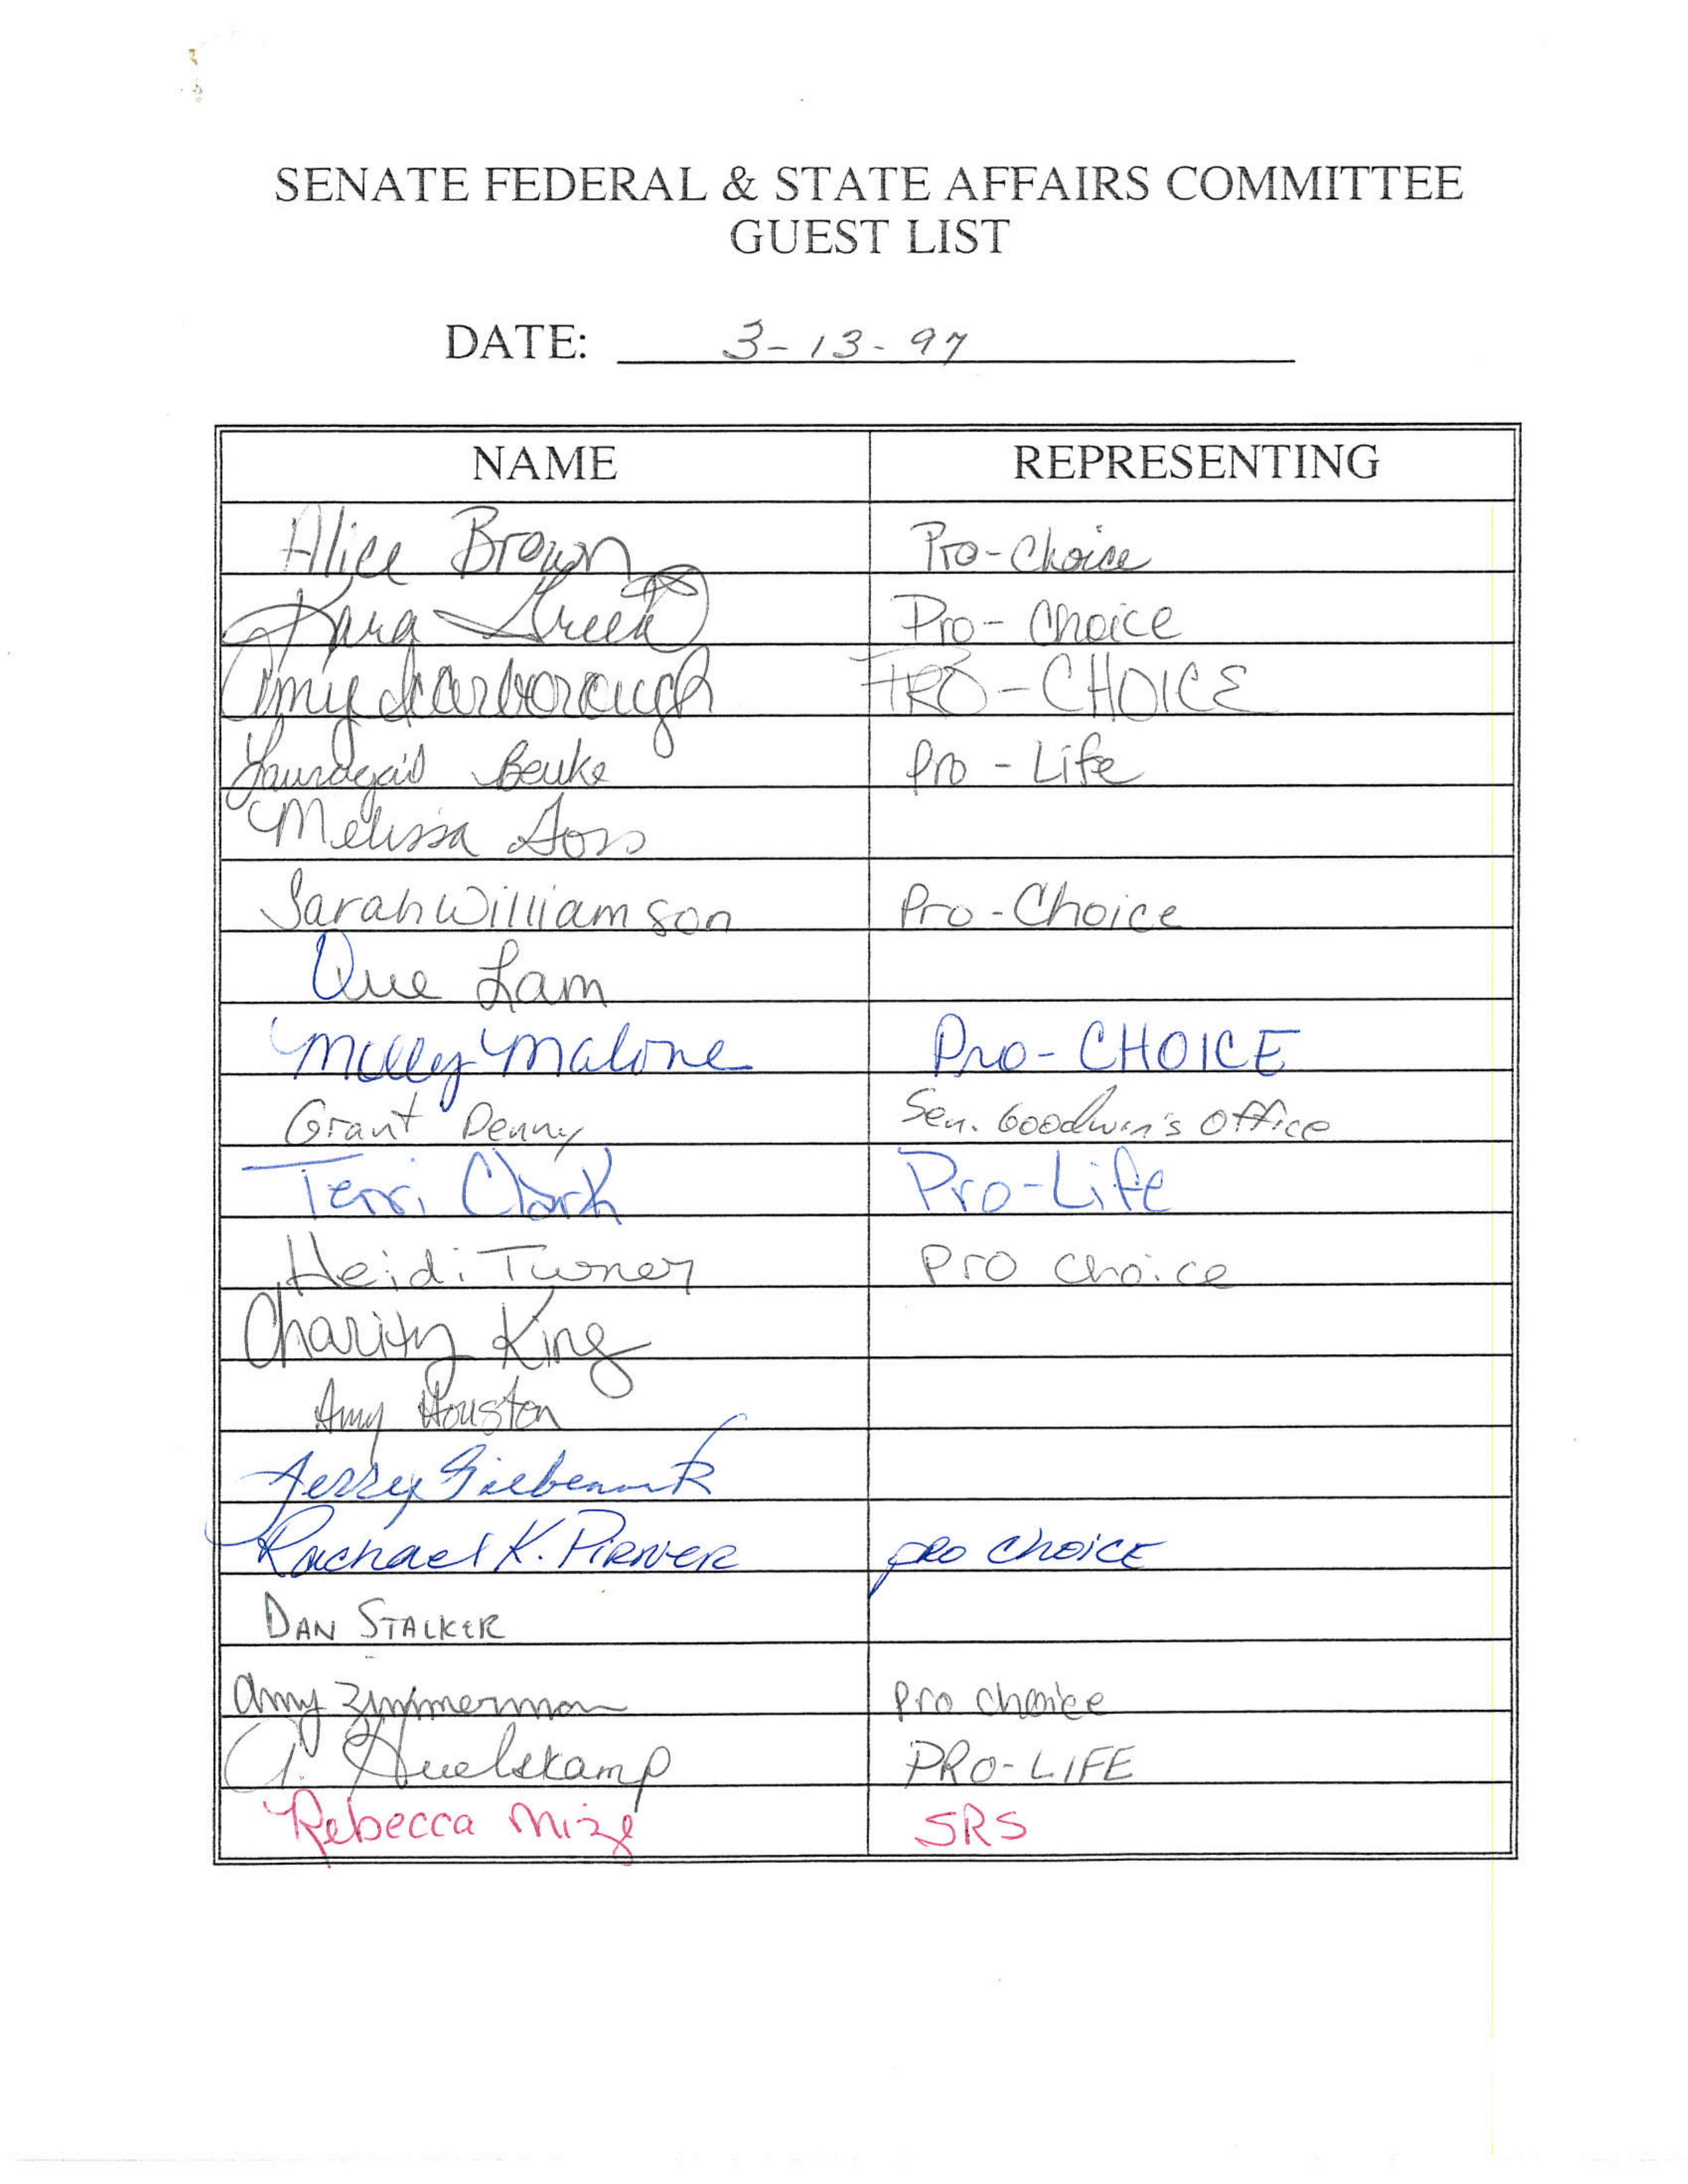 SENATE FEDERAL & STATE AFFAIRS COMMITTEE
GUEST LIST
DATE: 3-13-97
NAME REPRESENTING
Alice Brown Pro-Choice
Kara Green Pro-Choice
Amy Scarborough PRO-CHOICE
Lauragail Beuke Pro-Life
Melissa
Sarah Williamson Pro-Choice
Que Lam
Milly Malone Pro-CHOICE
Grant Denny Sen. Goodwin's Office
Terri Clark Pro-Life
Heidi Turner Pro choice
Charity King
Amy Houston
Rachael K. PIRNER pro CHOICE
DAN STALKER
Amy Zimmerman pro choice
A. Huelskamp PRO-LIFE
Rebecca Mize SRS